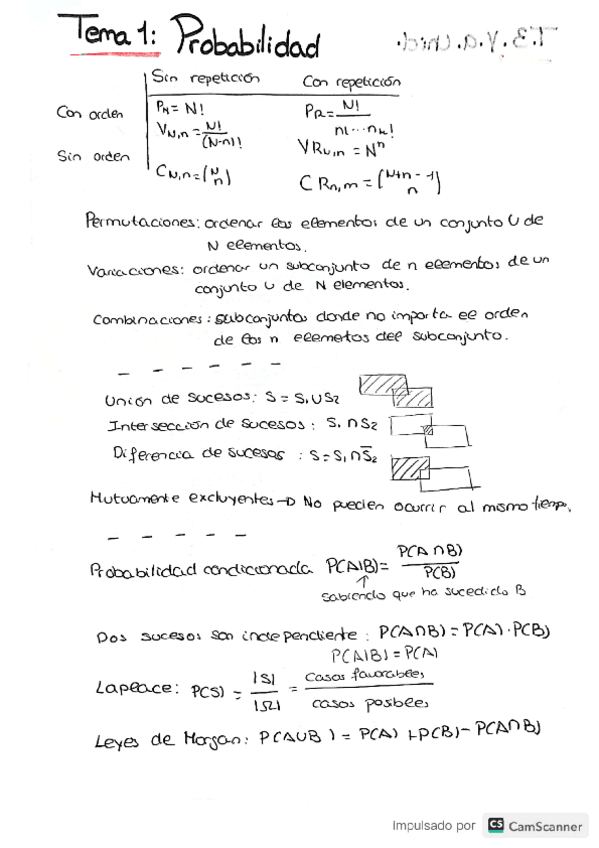 Tema 1: Probabilidad
Sin repetición Con repetición
Con orden P_N = N! P_R = N! / n1...nk!
V_N,n = N! / (N-n)! VR_N,n = N^n
Sin orden C_N,n = (N n) CR_n,m = (N+n-1 n)
Permutaciones: ordenar los elementos de un conjunto U de
N elementos.
Variaciones: ordenar un subconjunto de n elementos de un
conjunto U de N elementos.
Combinaciones: subconjuntos donde no importa el orden
de los n elemetos del subconjunto.
Unión de sucesos: S = S1 ∪ S2
Intersección de sucesos: S1 ∩ S2
Diferencia de sucesos: S = S1 ∩ S̄2
Mutuamente excluyentes → No pueden ocurrir al mismo tiempo.
Probabilidad condicionada P(A|B) = P(A ∩ B) / P(B)
↑
sabiendo que ha sucedido B
Dos sucesos son independiente: P(A∩B) = P(A)·P(B)
P(A|B) = P(A)
Laplace: P(S) = |S| / |Ω| = casos favorables / casos posbles
Leyes de Morgan: P(A∪B) = P(A) + P(B) - P(A∩B)
Impulsado por CS CamScanner